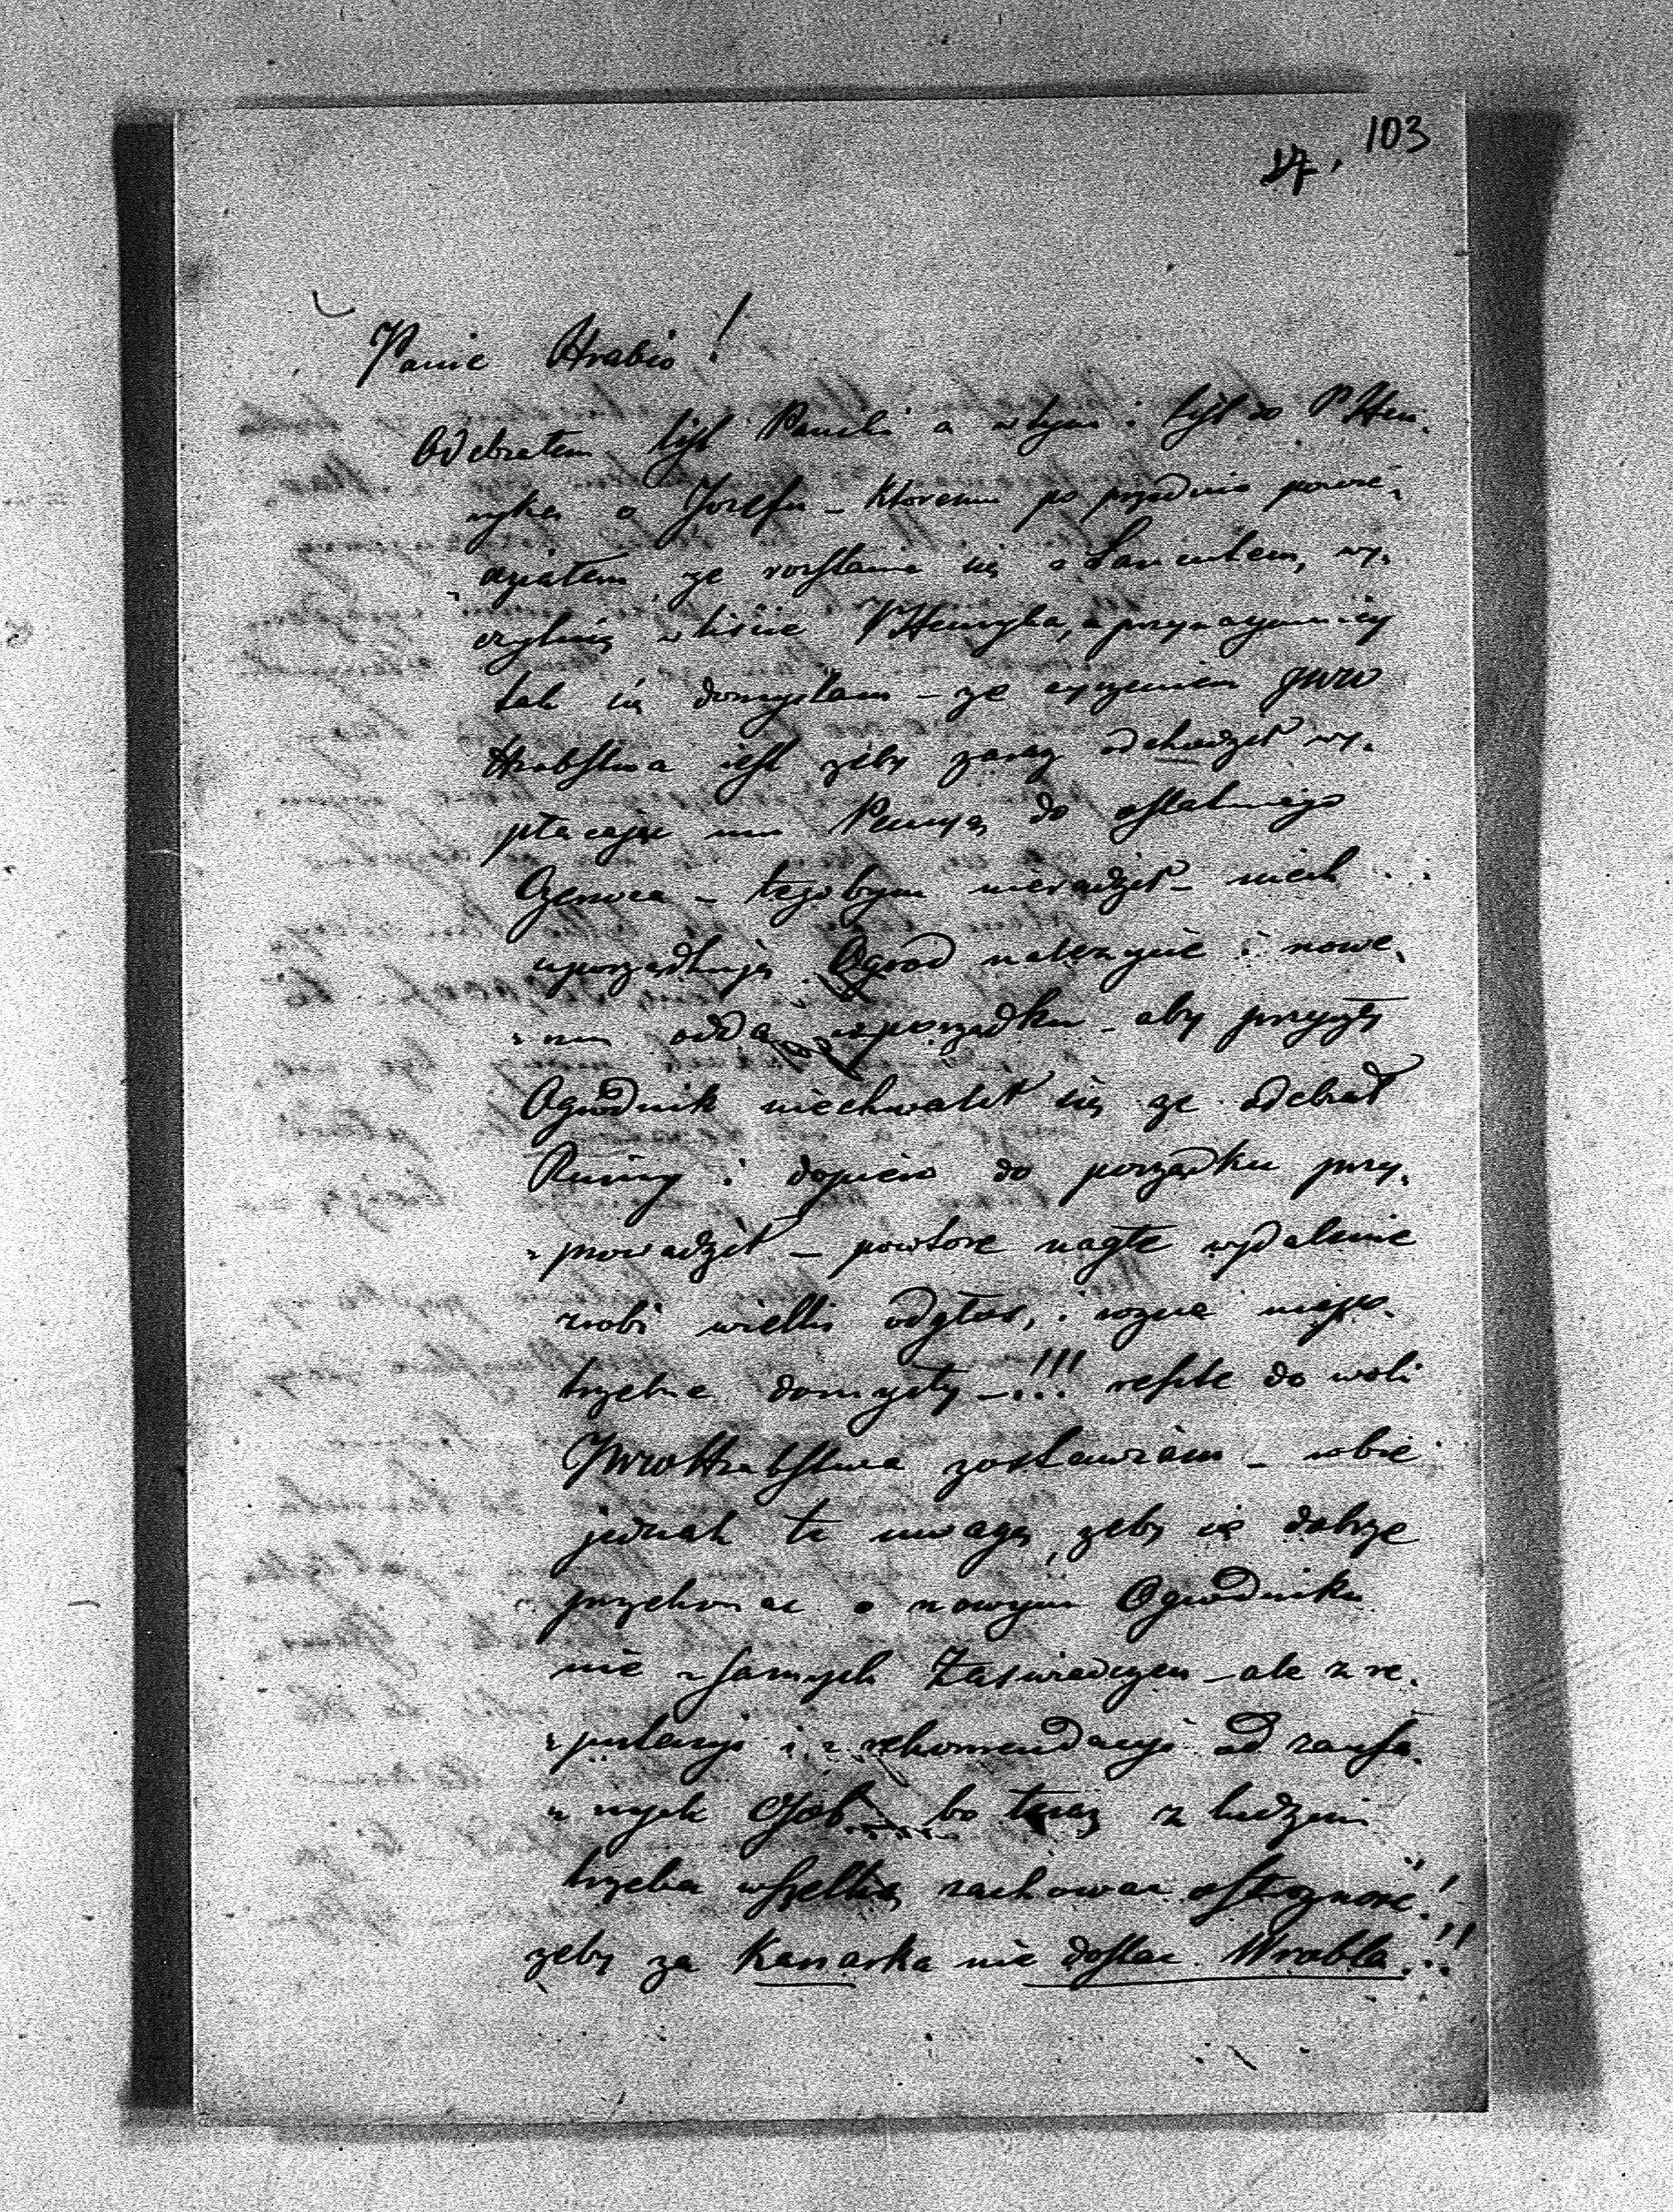 103
17.
Panie Hrabio!
Odebrałem list Pański a w tym i list do P Hen.
ryka o Jozefu - Ktoremu po przednio powie,
działem, ze rozstanie się z Lancutem, wy.
czytuię w liście PHenryka, a przynaymniey
tak się domyślam - ze zyczeniem JWW
Hrabstwa iest zeby zaraz odchodził wy.
płacając mu Pensyą do ostatniego
Czerwca - tegobym nieradził - niech
uporządkują Ogrod należycie i nowe,
mu odda w porządku - aby przyszły
Ogrodnik niechwalił się ze odebrał
Ruiny i dopiero do porządku przy,
prowadził - powtore nagłe wydalenie
zrobi wielki odgłos, i rozne niepo.
trzebne domysły - !!! resztę do woli
JWWHrabstwa zostawiam - robię
jednak tę uwagę, zeby się dobrze
przekonac o nowym Ogrodniku
nie z samych Zaświadczen - ale z re.
putacyi i z rekomendacyi od zaufa.
nych Osob bo teraz z ludzmi
trzeba wszelką zachować ostrozność!
zeby za Kanarka nie dostac Wrobla.!!!